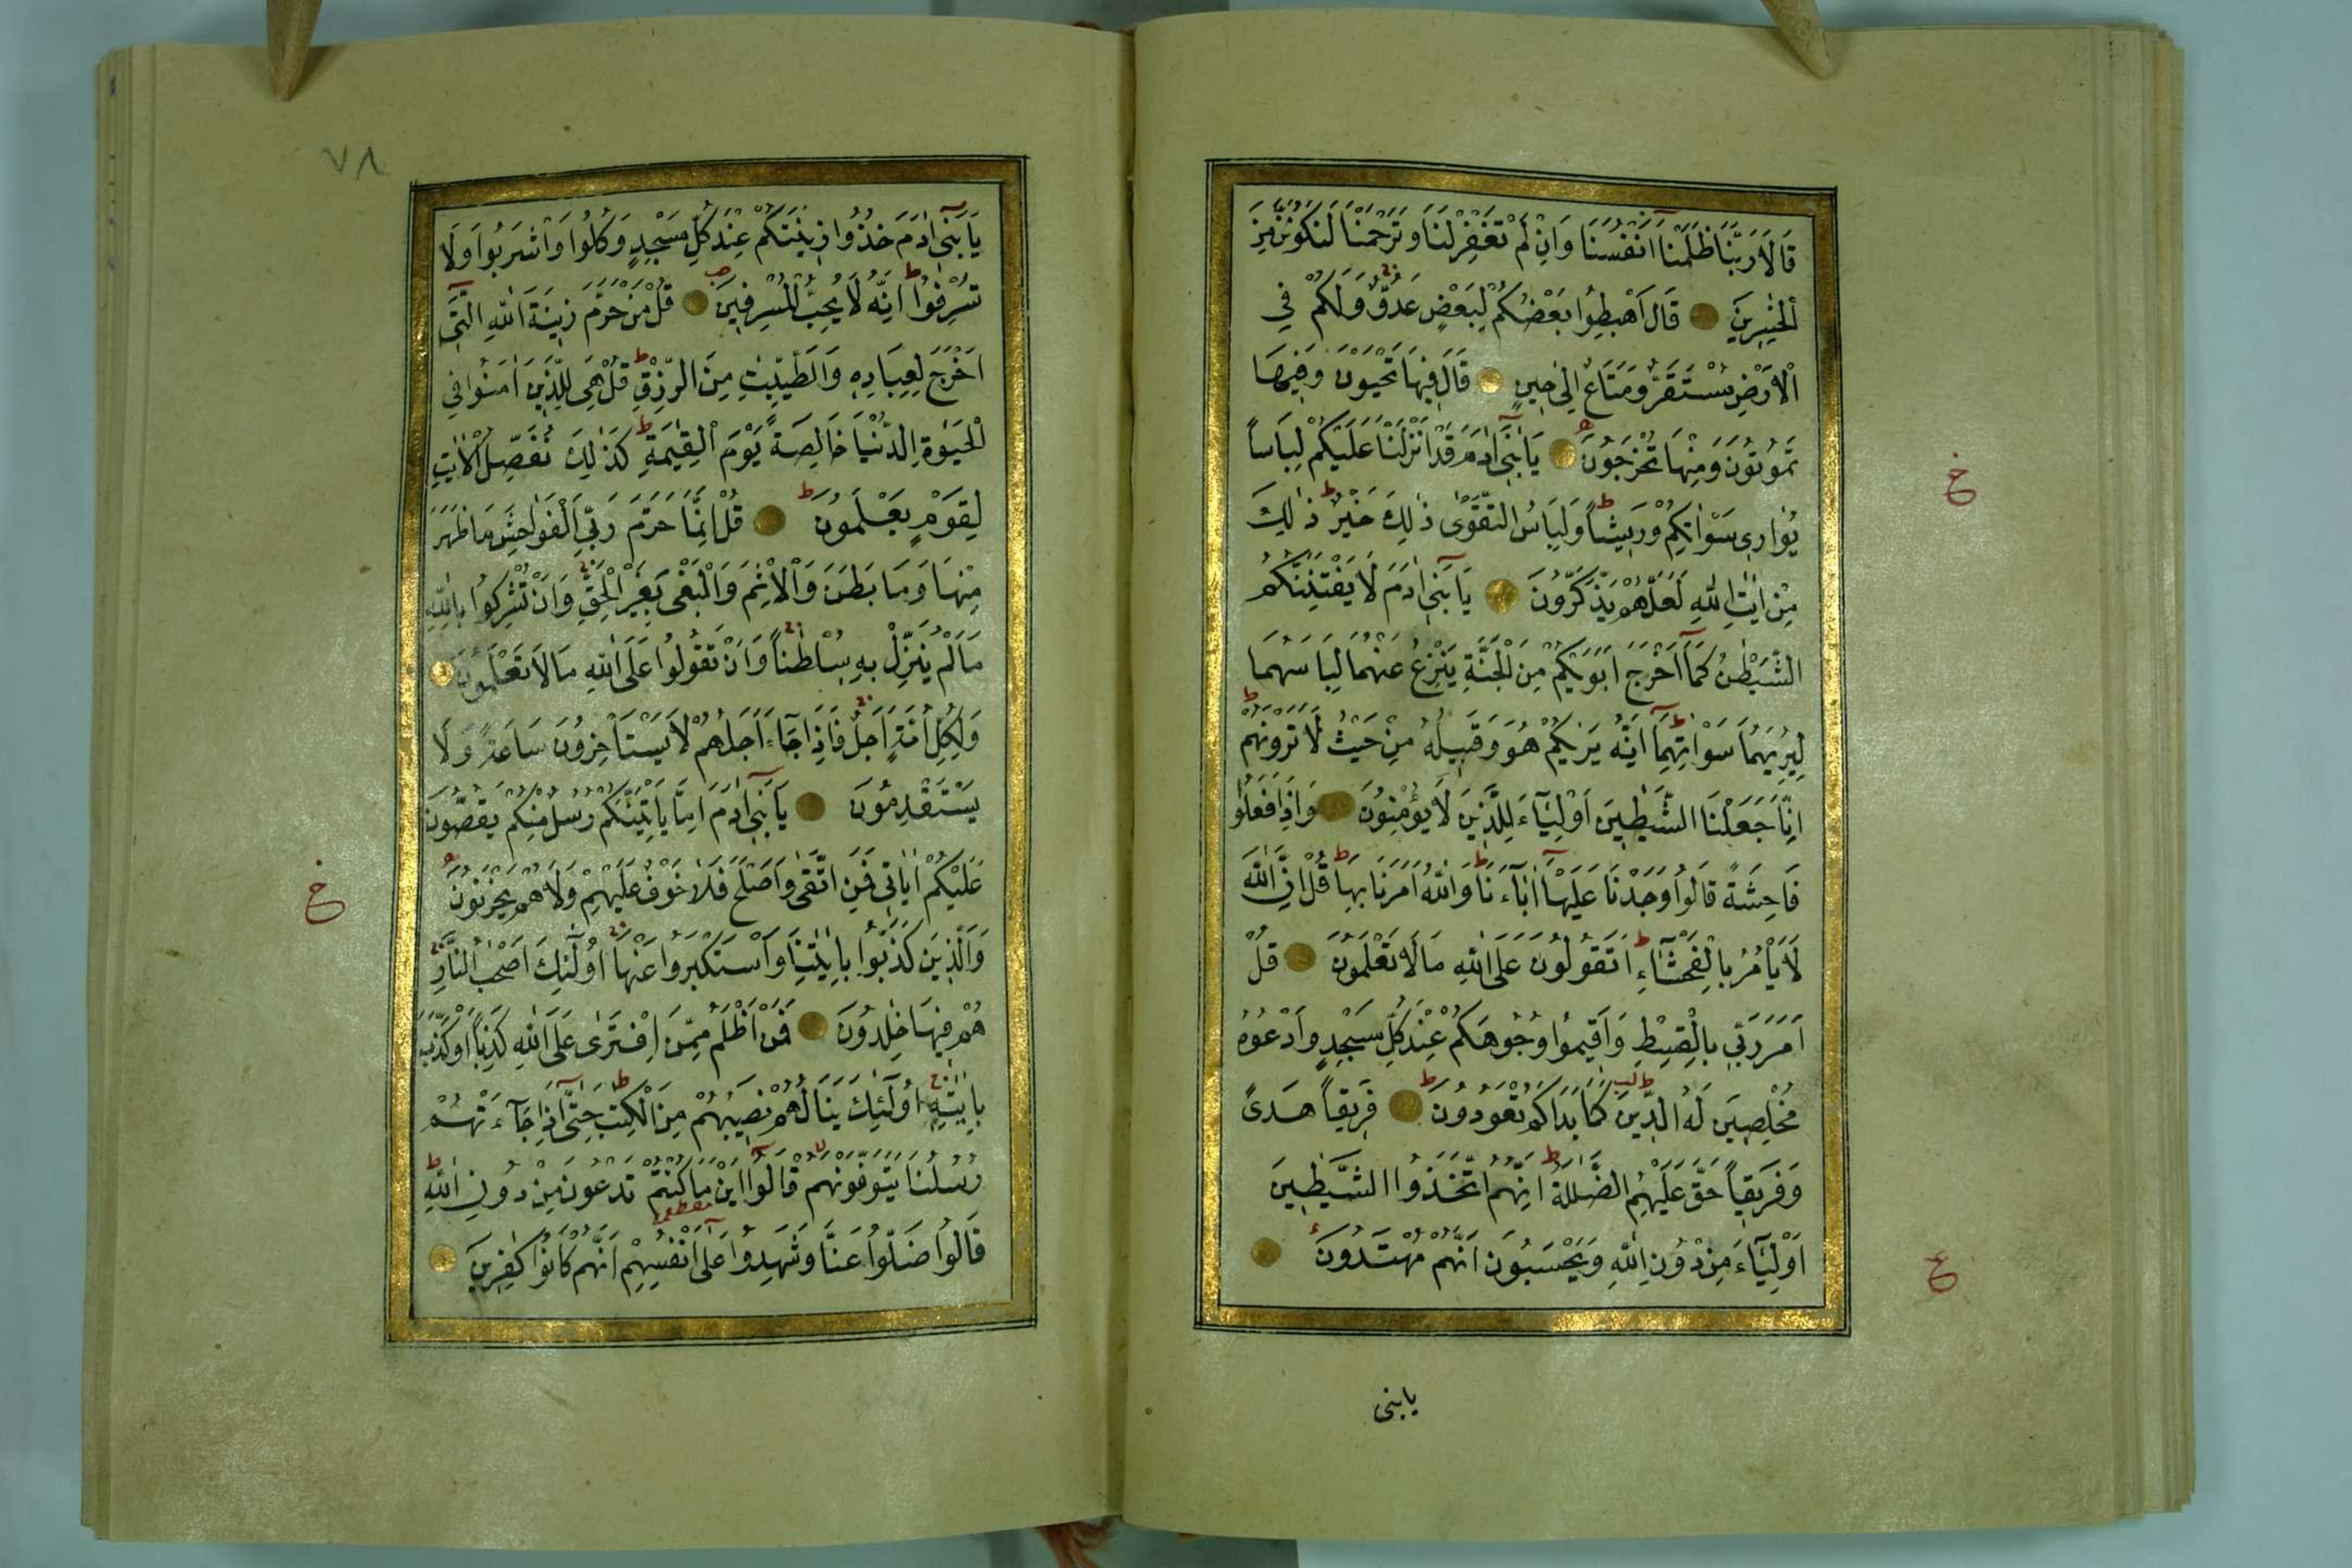 قَالَا رَبَّنَا ظَلَمْنَا اَنْفُسَنَا وَاِنْ لَمْ تَغْفِرْ لَنَا وَتَرْحَمْنَا لَنَكُونَنَّ مِنَ
الْخٰسِرِينَ قَالَ اهْبِطُوا بَعْضُكُمْ لِبَعْضٍ عَدُوٌّ وَلَكُمْ فِي
الْاَرْضِ مُسْتَقَرٌّ وَمَتَاعٌ اِلٰى حِينٍ قَالَ فِيهَا تَحْيَوْنَ وَفِيهَا
تَمُوتُونَ وَمِنْهَا تُخْرَجُونَ يَا بَنِٓى اٰدَمَ قَدْ اَنْزَلْنَا عَلَيْكُمْ لِبَاسًا
يُوَارِى سَوْاٰتِكُمْ وَرِيشًا وَلِبَاسُ التَّقْوٰى ذٰلِكَ خَيْرٌ ذٰلِكَ
مِنْ اٰيَاتِ اللّٰهِ لَعَلَّهُمْ يَذَّكَّرُونَ يَا بَنِٓى اٰدَمَ لَا يَفْتِنَنَّكُمُ
الشَّيْطٰنُ كَمَٓا اَخْرَجَ اَبَوَيْكُمْ مِنَ الْجَنَّةِ يَنْزِعُ عَنْهُمَا لِبَاسَهُمَا
لِيُرِيَهُمَا سَوْاٰتِهِمَا اِنَّهُ يَرٰيكُمْ هُوَ وَقَبِيلُهُ مِنْ حَيْثُ لَا تَرَوْنَهُمْ
اِنَّا جَعَلْنَا الشَّيٰطِينَ اَوْلِيَٓاءَ لِلَّذِينَ لَا يُؤْمِنُونَ وَاِذَا فَعَلُوا
فَاحِشَةً قَالُوا وَجَدْنَا عَلَيْهَٓا اٰبَٓاءَنَا وَاللّٰهُ اَمَرَنَا بِهَا قُلْ اِنَّ اللّٰهَ
لَا يَأْمُرُ بِالْفَحْشَٓاءِ اَتَقُولُونَ عَلَى اللّٰهِ مَا لَا تَعْلَمُونَ قُلْ
اَمَرَ رَبِّى بِالْقِسْطِ وَاَقِيمُوا وُجُوهَكُمْ عِنْدَ كُلِّ مَسْجِدٍ وَادْعُوهُ
مُخْلِصِينَ لَهُ الدِّينَ كَمَا بَدَاَكُمْ تَعُودُونَ فَرِيقًا هَدٰى
وَفَرِيقًا حَقَّ عَلَيْهِمُ الضَّلٰلَةُ اِنَّهُمُ اتَّخَذُوا الشَّيٰطِينَ
اَوْلِيَٓاءَ مِنْ دُونِ اللّٰهِ وَيَحْسَبُونَ اَنَّهُمْ مُهْتَدُونَ
يابنى
خ
ع
٧٨
يَا بَنِٓى اٰدَمَ خُذُوا زِينَتَكُمْ عِنْدَ كُلِّ مَسْجِدٍ وَكُلُوا وَاشْرَبُوا وَلَا
تُسْرِفُوا اِنَّهُ لَا يُحِبُّ الْمُسْرِفِينَ قُلْ مَنْ حَرَّمَ زِينَةَ اللّٰهِ الَّتِٓى
اَخْرَجَ لِعِبَادِهِ وَالطَّيِّبٰتِ مِنَ الرِّزْقِ قُلْ هِىَ لِلَّذِينَ اٰمَنُوا فِى
الْحَيٰوةِ الدُّنْيَا خَالِصَةً يَوْمَ الْقِيٰمَةِ كَذٰلِكَ نُفَصِّلُ الْاٰيٰتِ
لِقَوْمٍ يَعْلَمُونَ قُلْ اِنَّمَا حَرَّمَ رَبِّىَ الْفَوَاحِشَ مَا ظَهَرَ
مِنْهَا وَمَا بَطَنَ وَالْاِثْمَ وَالْبَغْىَ بِغَيْرِ الْحَقِّ وَاَنْ تُشْرِكُوا بِاللّٰهِ
مَا لَمْ يُنَزِّلْ بِهِ سُلْطٰنًا وَاَنْ تَقُولُوا عَلَى اللّٰهِ مَا لَا تَعْلَمُونَ
وَلِكُلِّ اُمَّةٍ اَجَلٌ فَاِذَا جَٓاءَ اَجَلُهُمْ لَا يَسْتَأْخِرُونَ سَاعَةً وَلَا
يَسْتَقْدِمُونَ يَا بَنِٓى اٰدَمَ اِمَّا يَأْتِيَنَّكُمْ رُسُلٌ مِنْكُمْ يَقُصُّونَ
عَلَيْكُمْ اٰيَاتِى فَمَنِ اتَّقٰى وَاَصْلَحَ فَلَا خَوْفٌ عَلَيْهِمْ وَلَا هُمْ يَحْزَنُونَ
وَالَّذِينَ كَذَّبُوا بِاٰيٰتِنَا وَاسْتَكْبَرُوا عَنْهَٓا اُولٰٓئِكَ اَصْحٰبُ النَّارِ
هُمْ فِيهَا خٰلِدُونَ فَمَنْ اَظْلَمُ مِمَّنِ افْتَرٰى عَلَى اللّٰهِ كَذِبًا اَوْ كَذَّبَ
بِاٰيٰتِهِ اُولٰٓئِكَ يَنَالُهُمْ نَصِيبُهُمْ مِنَ الْكِتٰبِ حَتّٰٓى اِذَا جَٓاءَتْهُمْ
رُسُلُنَا يَتَوَفَّوْنَهُمْ قَالُٓوا اَيْنَ مَا كُنْتُمْ تَدْعُونَ مِنْ دُونِ اللّٰهِ
قَالُوا ضَلُّوا عَنَّا وَشَهِدُوا عَلٰٓى اَنْفُسِهِمْ اَنَّهُمْ كَانُوا كٰفِرِينَ
خ